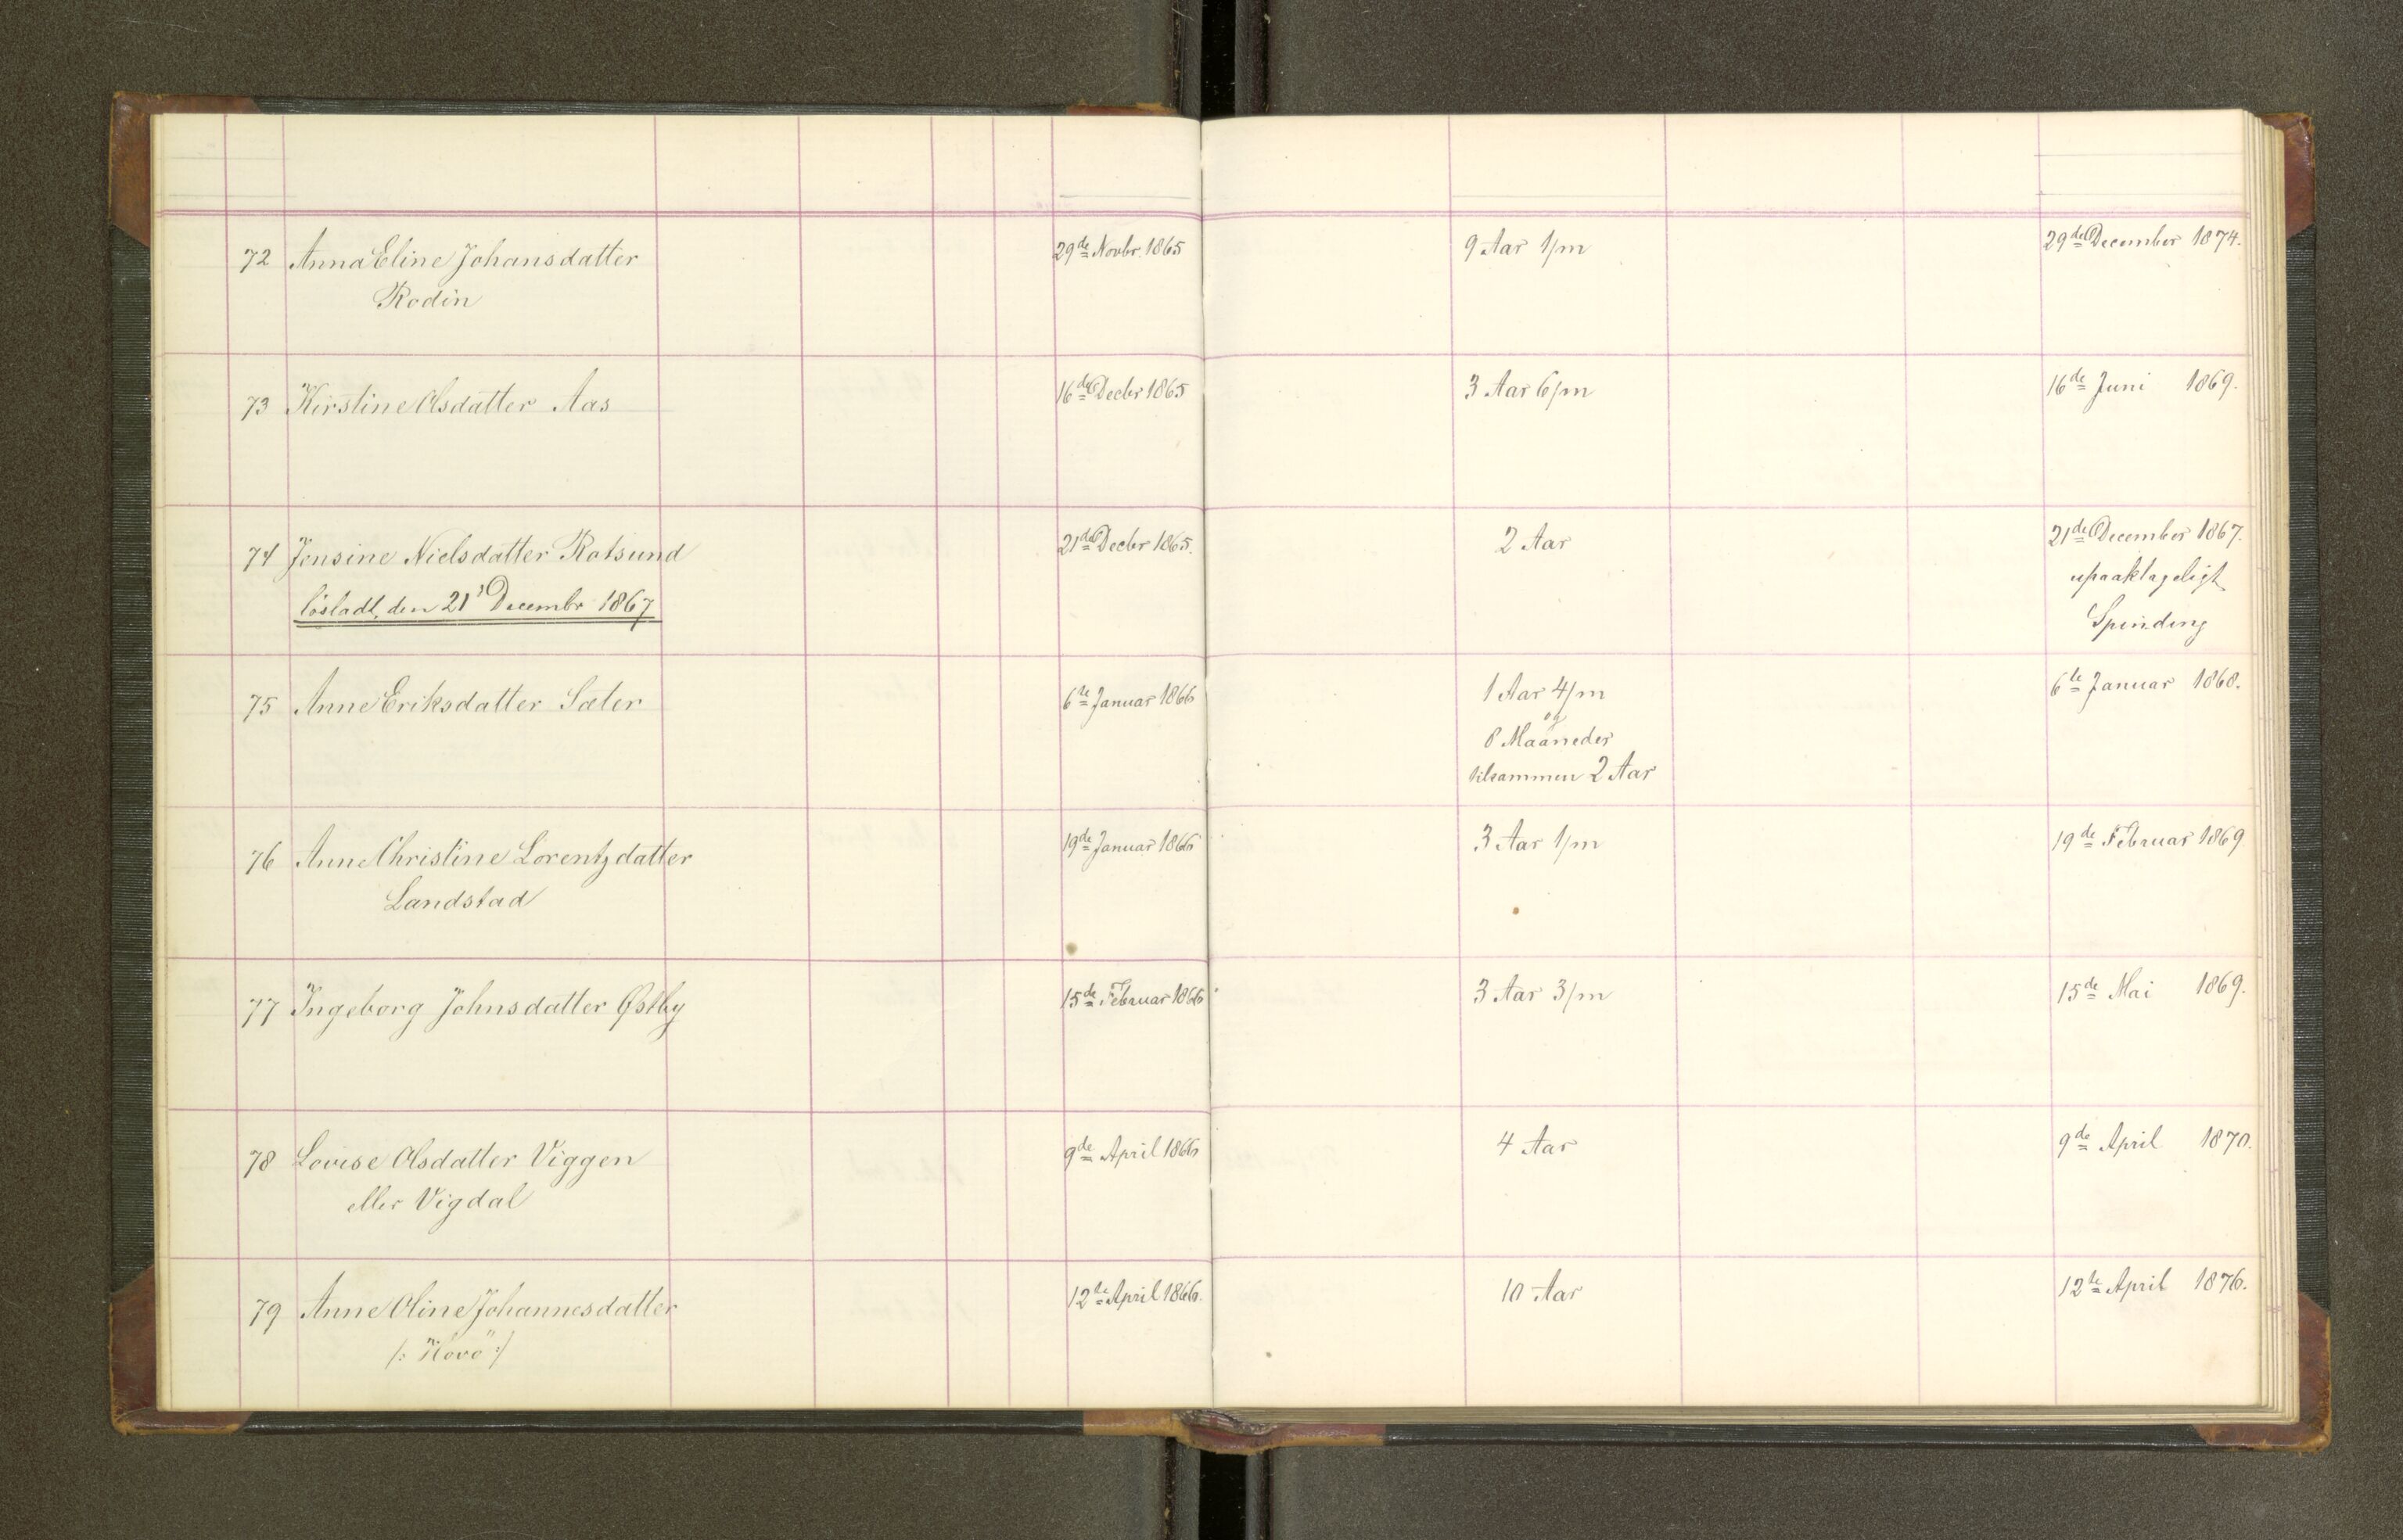 72 Anna Eline Johansdatter 29de Novbr. 1865 9 Aar 1/m 29de December 1874.
Rodin
73 Kirstine Olsdatter Aas 16de Decbr 1865 3 Aar 6/m 16de Juni 1869.
74 Jensine Nielsdatter Rotsund 21de Decbr 1865. 2 Aar 21de December 1867.
upaaklageligt
løsladt, den 21' Decembr 1867
Spinding
75 Anne Eriksdatter Sæter 6te Januar 1866 1 Aar 4/m 6te Januar 1868.
og
8 Maaneder
tilsammen 2 Aar
76 Anne Christine Lorentzdatter 19de Januar 1866 3 Aar 1/m 19de Februar 1869
Landstad
77 Ingeborg Johnsdatter Østby 15de Februar 1866 3 Aar 3/m 15de Mai 1869.
78 Lovise Olsdatter Viggen 9de April 1866 4 Aar 9de April 1870.
eller Vigdal
79 Anne Oline Johannesdatter 12te April 1866. 10 Aar 12te April 1876.
/: Hovö :/